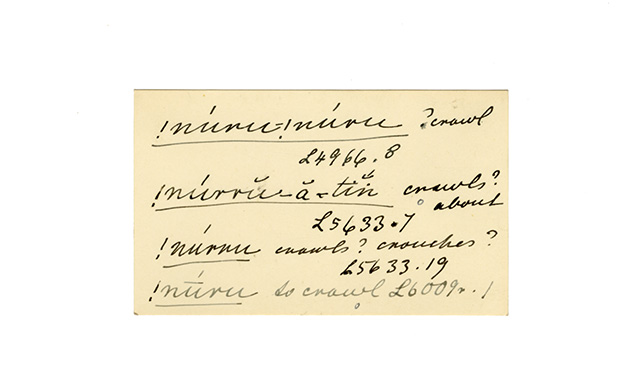 !núru=!núru ? crawl
L4966.8
!núrrŭ-ă=tĭn crawls?
about
L5633.7
!núrru crawls? crouches?
L5633.19
!núru to crawl L6009r.1